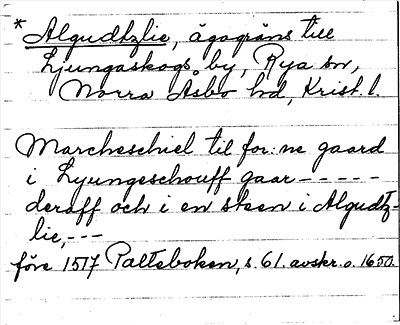 * Algudtzlie, ägogräns till
Ljungaskogs by, Rya sn,
Norra Åsbo hd, Krist. l.
Marcheschiel til for:ne gaard
i Lyungeschouff gaar - - - - -
deraff och i en steen i Algudtz-
lie, - - -
före 1517 Paltsboken, s. 61. avskr. o. 1650.